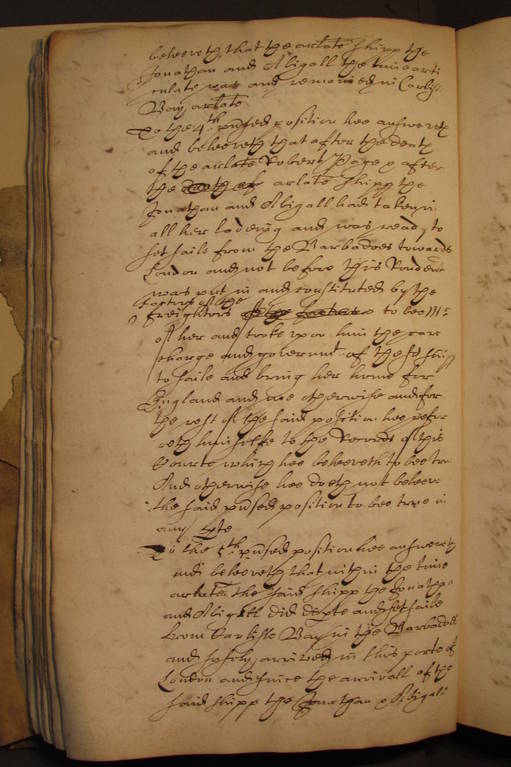 beleeveth that the arlate shipp the
Jonathan and Abigall the time arti
culate was and remained in Carlis
Bay arlate
To the 4th pnsed position hee answereth
and beleeveth that after the death
of the arlate Robert Page & after
the arlate shipp the
Jonathan and Abigall had taken in
all her lading and was ready to
set saile from the Barbadoes towards
London and not before this Rendent
was put in and constituted by the
factors of the
freighters to bee Mr
of her and tooke upon him the care
charge and governmt of the sd shipp
to saile and bring her home for
England and noe otherwise and for
the rest of the said position hee refer
reth himselfe to the Records of this
Courte which hee beleeveth to bee true
And otherwise hee doeth not beleeve
the said pnsed position to bee true in
any pte
To the 5th pnsed position hee answereth
and beleeveth that within the time
arlate the said shipp the Jonathan
and Abigall did depte and set saile
from Carlisle Bay in the Barbadoes
and safely arrived in this porte of
London and since the arrivall of the
said shipp the Jonathan & Abigall